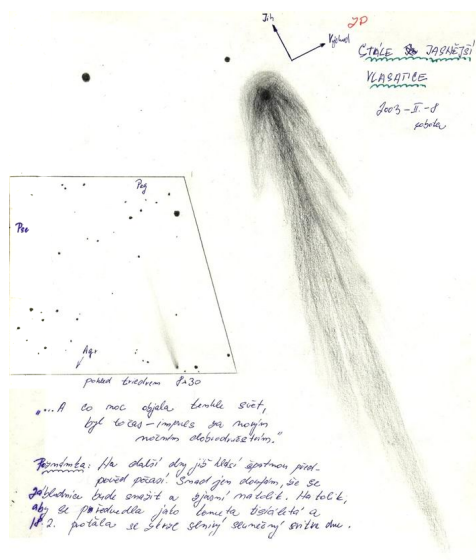 JD
Jih
Východ
STÁLE JASNĚJŠÍ
VLASATICE
2003-II.-8
sobota
Peg
Psc
Aqr
pohled triedrem 8x30
"...A co noc objala tenhle svět,
byl to čas - impuls za novým
nočním dobrodružstvím."
Poznámka: Na další dny již hlásí špatnou před-
pověď počasí. Snad jen doufám, že se
bude snažit a zjasní natolik. Natolik,
aby se předvedla jako kometa tisíciletí a
18.2. slunečný svitu dne.